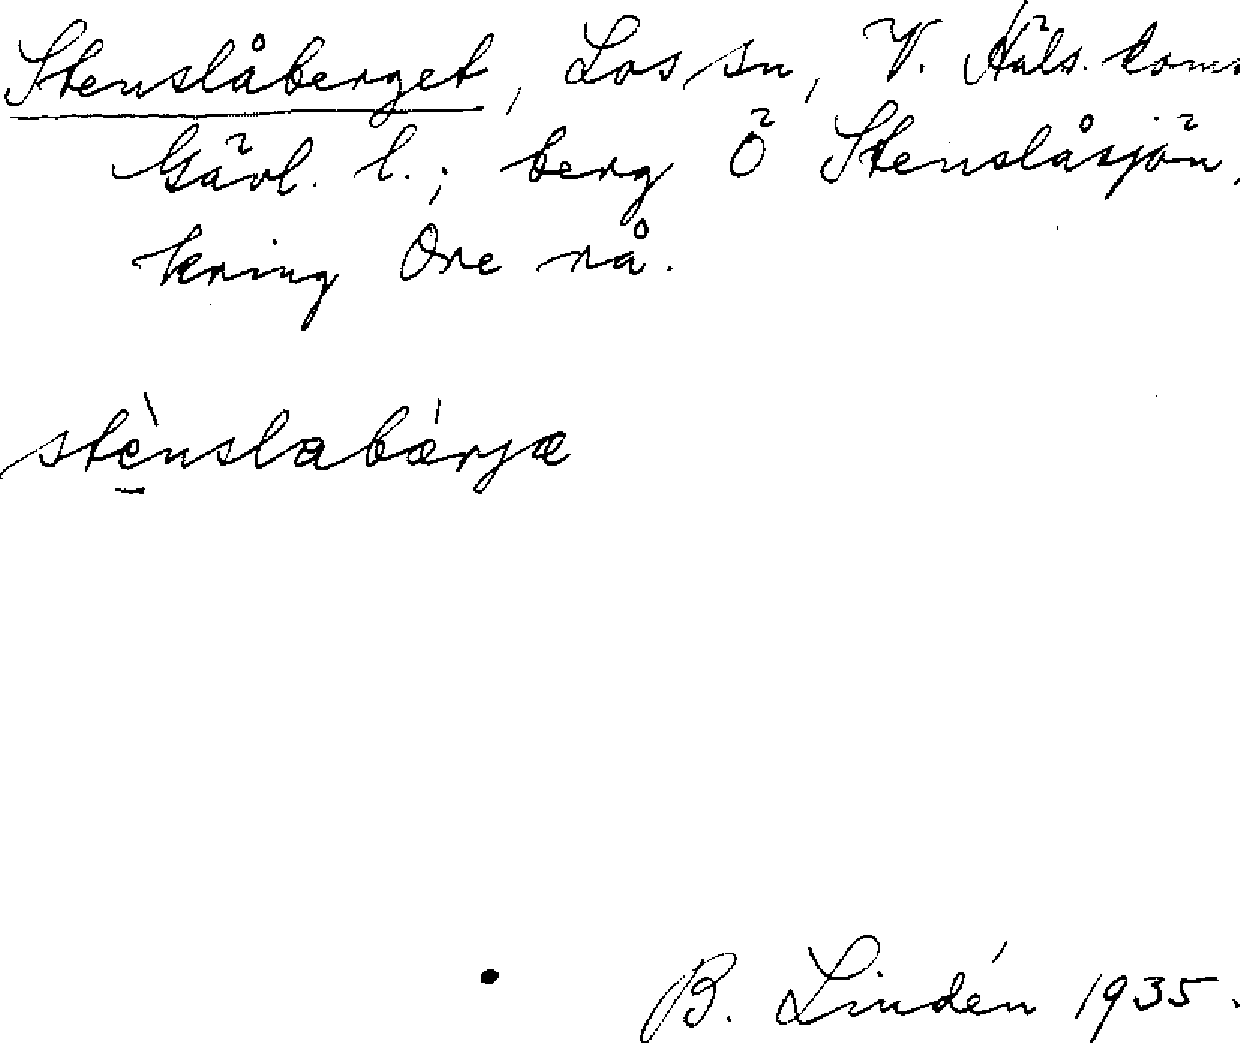 Stenslåberget, Los sn, V. Häls. doms
Gävl. l.; berg Ö Stenslåsjön,
kring Ore rå.
stènslabǽrjæ
B. Lindén 1935.